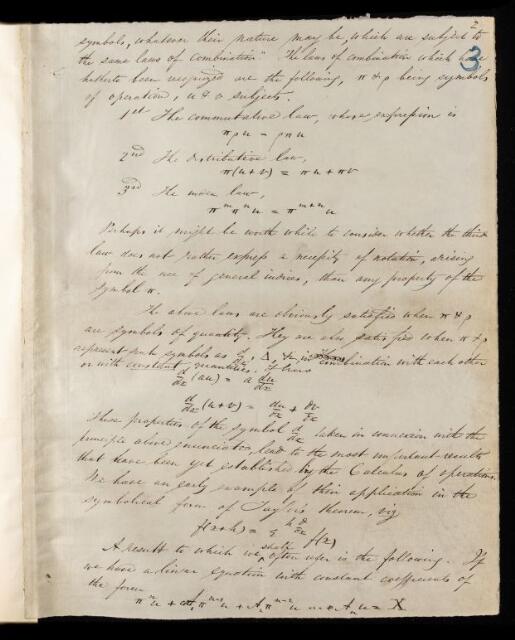 2
3
symbols, whatever their nature may be, which are subject to
the same laws of combination." The laws of combination which have
hitherto been recognised are the following, π & ρ being symbols
of operation, u & v subjects.
1st The commutative law, whose expression is
πρu = ρπu
2nd The distributive law,
π(u+v) = πu + πv
3rd The index law,
π^m π^n u = π^{m+n} u
Perhaps it might be worth while to consider whether the third
law does not rather express a necessity of notation, arising
from the use of general indices, than any property of the
symbol π.
The above laws are obviously satisfied when π & ρ
are symbols of quantity. They are also satisfied when π & ρ
represent such symbols as d/dx, Δ, &c, in combination with each other
or with constant quantities. Thus
d/dx (au) = a du/dx
d/dx (u+v) = du/dx + dv/dx
These properties of the symbol d/dx taken in connexion with the
principle above enunciated, lead to the most important results
that have been yet established by the Calculus of operations.
We have an early example of their application in the
symbolical form of Taylor's theorem, viz
f(x+h) = ε^{h d/dx} f(x)
A result to which we shall often refer is the following. If
we have a linear equation with constant coefficients of
the form
π^n u + A₁π^{n-1} u + A₂π^{n-2} u ... + Aₙu = X